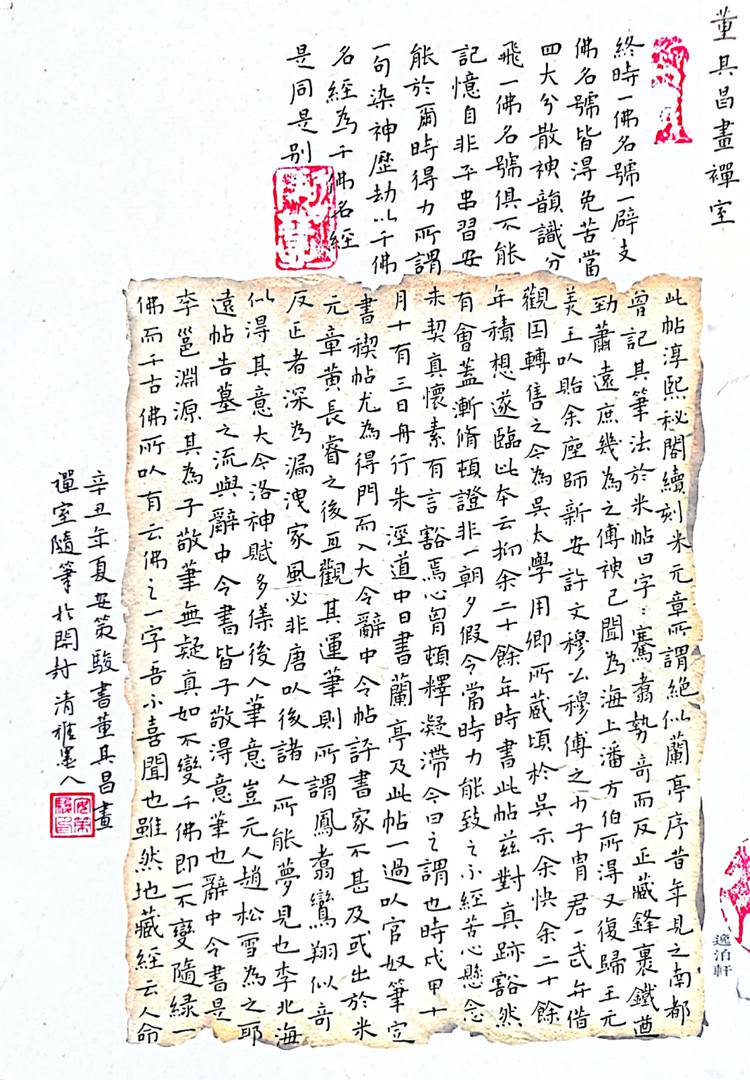 董其昌畫禪室
此帖淳熙秘閣續刻米元章所謂絕似蘭亭序昔年見之南都
曾記其筆法於米帖曰字:騫翥勢奇而反正藏鋒裹鐵遒
勁蕭遠庶幾為之傳神已聞為海上潘方伯所得又復歸王元
美王以貽余座師新安許文穆公穆傳之少子胄君一武弁借
觀因轉售之今為吳太學用卿所藏頃於吳示余快余二十餘
年積想遂臨此本云抑余二十餘年時書此帖茲對真跡豁然
有會蓋漸脩頓證非一朝夕假令當時力能致之不經苦心懸念
未契真懷素有言豁焉心胸頓釋凝滯今日之謂也時戊甲十
月十有三日舟行朱涇道中日書蘭亭及此帖一過以官奴筆定
書禊帖尤為得門而入大令辭中令帖評書家不甚及或出於米
元章黃長睿之後亙觀其運筆則所謂鳳翥鸞翔似奇
反正者深為漏洩家風必非唐以後諸人所能夢見也李北海
似得其意大令洛神賦多係後人筆意豈元人趙松雪為之耶
遠帖告墓之流與辭中令書皆子敬得意筆也辭中令書是
李邕淵源其為子敬筆無疑真如不變千佛即一不變隨緣一
佛而千古佛所以有云佛之一字吾不喜聞也雖然地藏經云人命
終時一佛名號一辟支
佛名號皆得免苦當
四大分散神韻識分
飛一佛名號俱不能
記憶自非平串習安
能於爾時得力所謂
一句染神歷劫以千佛
名經為千佛名經
是同是別
辛丑年夏安策駿書董其昌畫
禪室隨筆於開封清雅墨人
逸泊軒